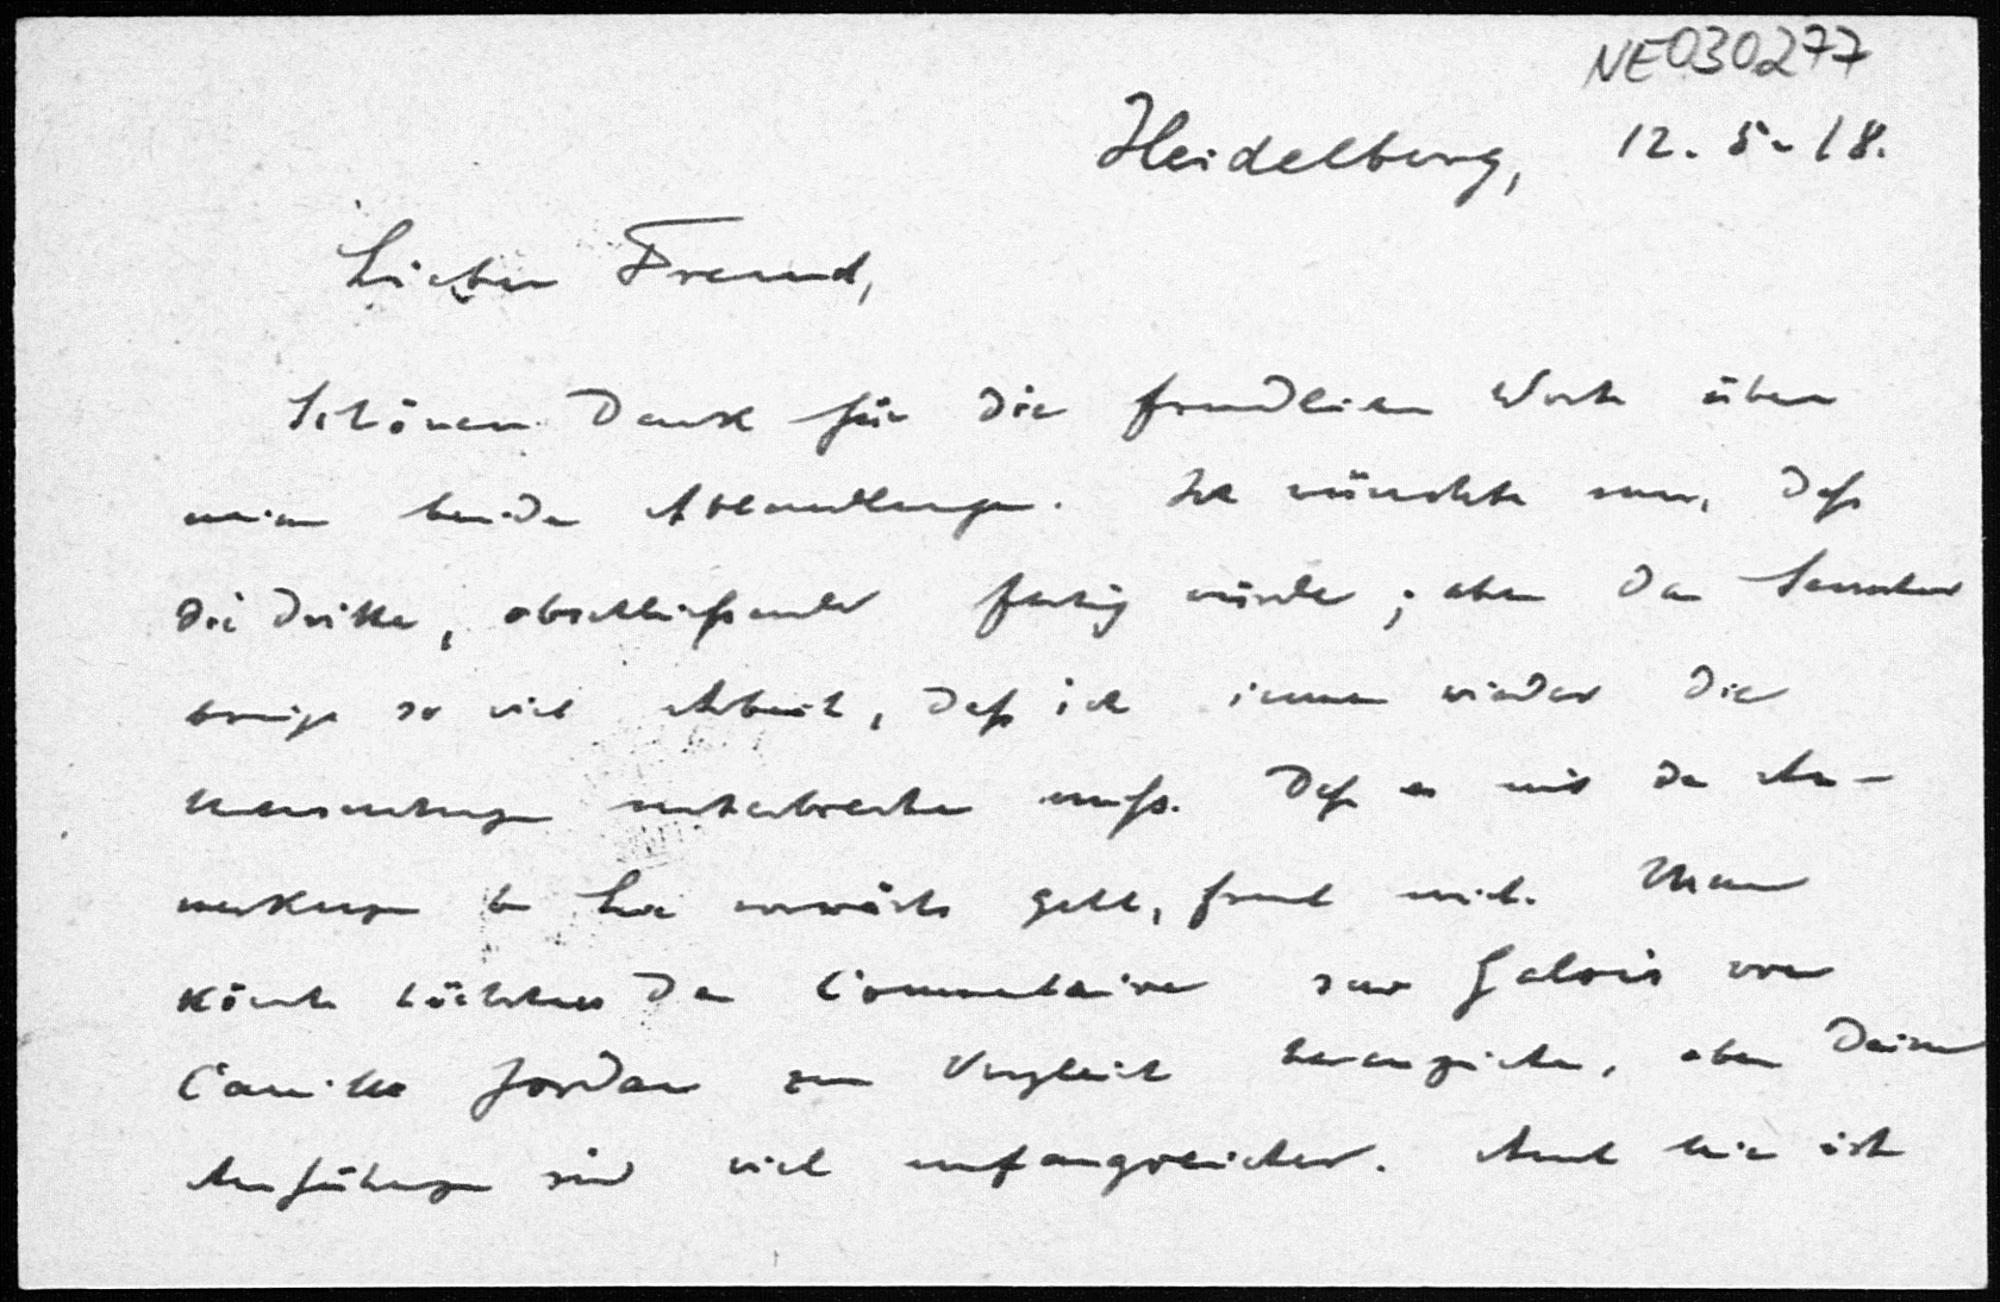 NE030277
Heidelberg, 12. 5. 18.
Lieber Freund,
Schönen Dank für die freundlichen Worte über
meine beiden Abhandlungen. Ich wünschte nur, daß
die dritte, abschließende fertig würde; aber das Semester
bringt so viel Arbeit, daß ich immer wieder die
unterbrechen muß. Daß es mit den An-
merkungen bei Lie vorwärts geht, freut mich. Man
könnte höchstens den Commentaire sur Galois von
Camille Jordan zum Vergleich heranziehen, aber Deine
Ausführungen sind viel umfangreicher. Auch hier ist